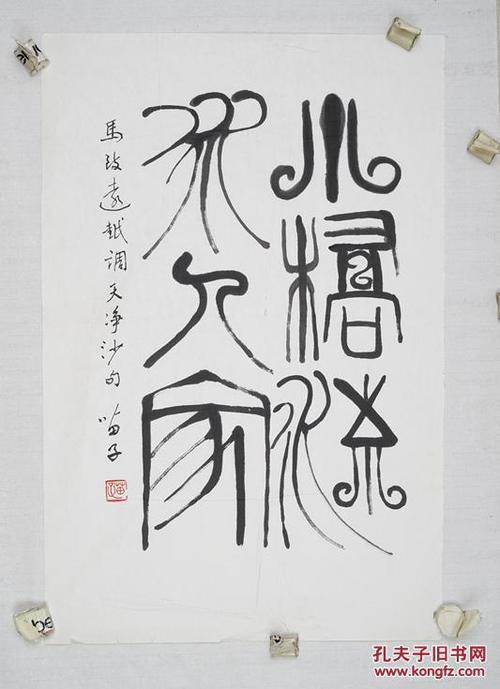 小橋流
水人家
馬致遠越調天净沙句 苗子
孔夫子旧书网
www.kongfz.com